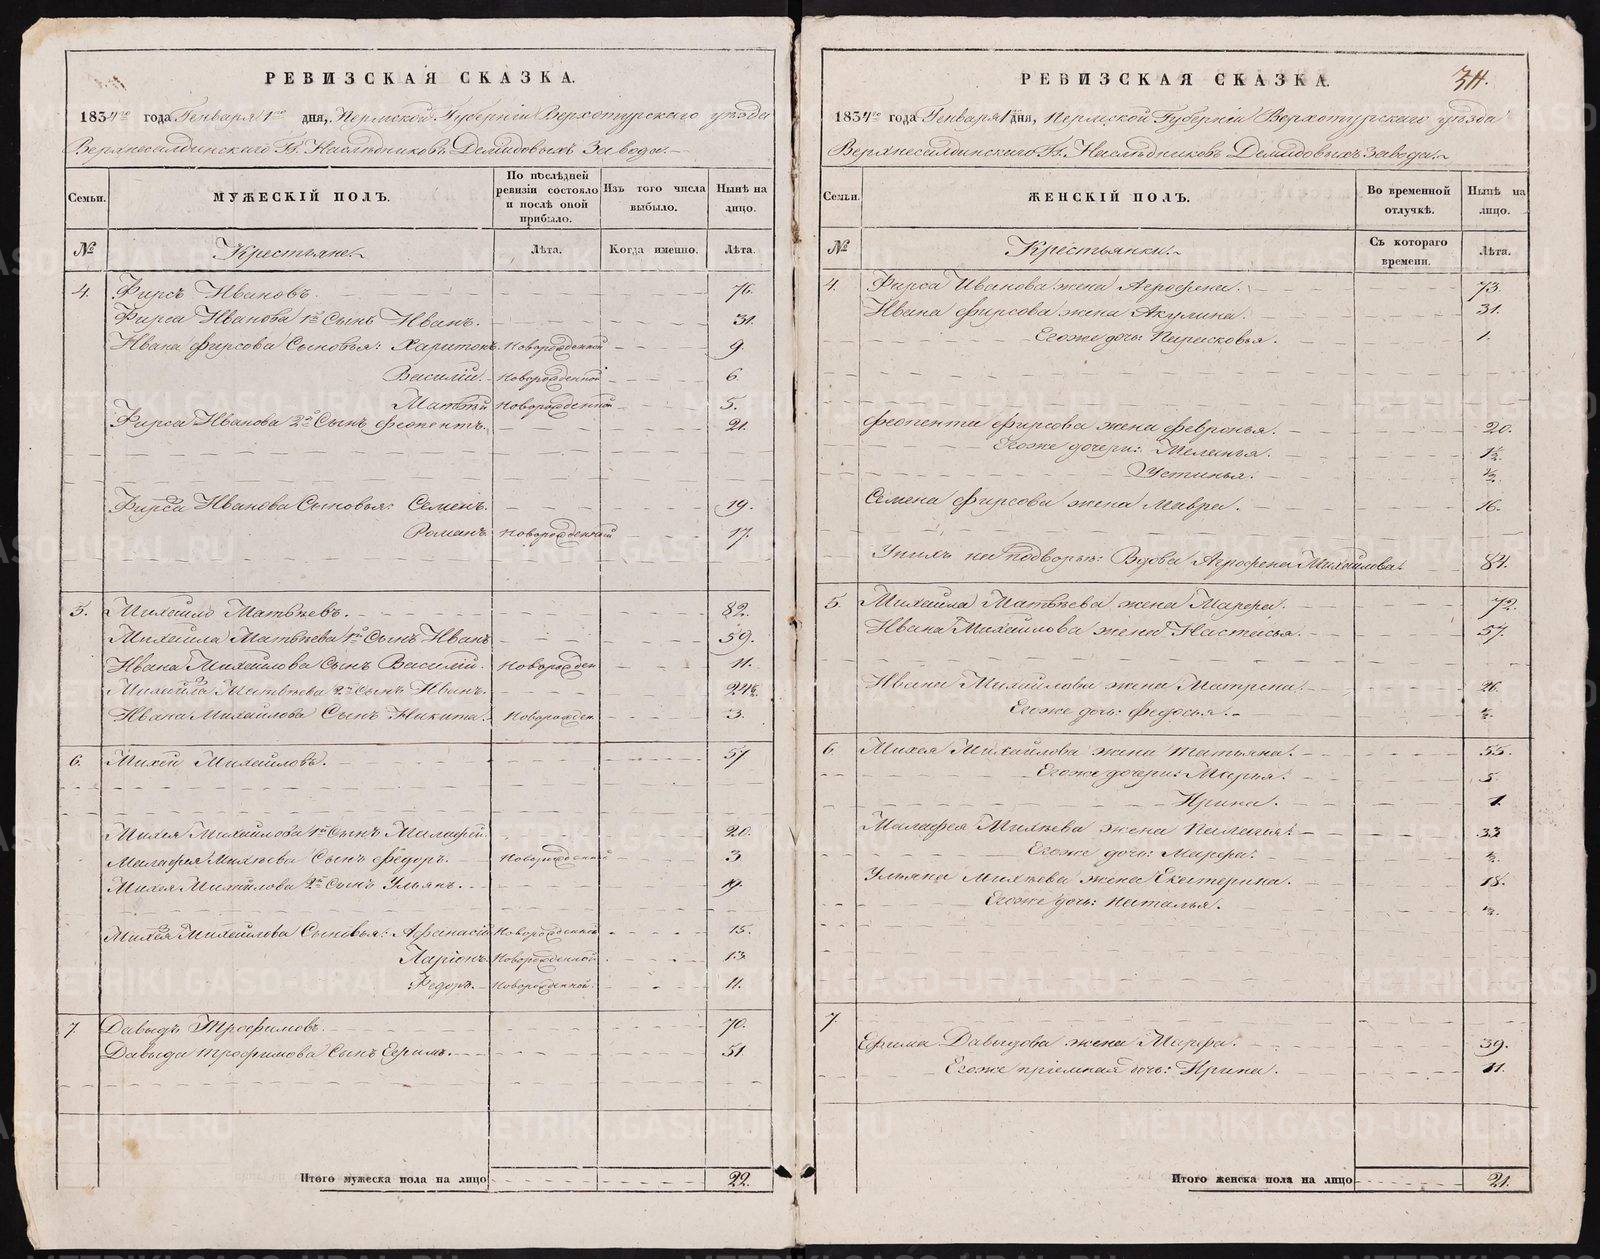 РЕВИЗСКАЯ СКАЗКА.
1834го года Генваря 1го дня, Пермской Губерніи Верхотурского уѣзда
Верхнесалдинского Гг. Наслѣдниковъ Демидовыхъ завода.
Семьи.
МУЖЕСКІЙ ПОЛЪ.
По послѣдней ревизіи состояло и послѣ оной прибыло.
Изъ того числа выбыло.
Нынѣ на лицо.
№
Крестьяне
Лѣта.
Когда именно.
Лѣта.
4. Фирсъ Ивановъ. 76.
Фирса Иванова 1й Сынъ Иванъ. 31.
Ивана Фирсова Сыновья: Харитонъ. Новорожденной 9.
Василій. Новорожденной 6.
Матвѣй Новорожденной 5.
Фирса Иванова 2й Сынъ Феопентъ. 21.
Фирса Иванова Сыновья: Семенъ. 19.
Романъ Новорожденный 17.
5. Михайло Матвѣевъ. 82.
Михайла Матвѣева 1й Сынъ Иванъ 59.
Ивана Михайлова Сынъ Василій. Новорожден 11.
Михайла Матвѣева 2й Сынъ Иванъ. 24½.
Ивана Михайлова Сынъ Никита. Новорожден. 3.
6. Михей Михайловъ. 57
Михея Михайлова 1й Сынъ Малафей. 20.
Малафея Михѣева Сынъ Фёдоръ. Новорожденной 3
Михея Михайлова 2й Сынъ Ульянъ. 19.
Михея Михайлова Сыновья: Афанасій Новорожденный 15.
Ларіонъ. Новорожденной 13
Федоръ. Новорожденной. 11.
7. Давыдъ Трофимовъ. 70.
Давыда Трофимова Сынъ Ефимъ. 51.
Итого мужеска пола на лицо 22.
34.
РЕВИЗСКАЯ СКАЗКА.
1834го года Генваря 1го дня, Пермской Губерніи Верхотурского уѣзда
Верхнесалдинского Гг. Наслѣдниковъ Демидовыхъ завода.
Семьи.
ЖЕНСКІЙ ПОЛЪ.
Во временной отлучкѣ.
Нынѣ на лицо.
№
Крестьянки.
Съ котораго времени.
Лѣта.
4. Фирса Иванова жена Агрофена. 73.
Ивана Фирсова жена Акулина. 31.
Егоже дочь Парасковья. 1.
Феопента Фирсова жена Февронья. 20.
Егоже дочери: Меланья. 1½.
Устинья. ½.
Семена Фирсова жена Мавра. 16.
У нихъ на подворьѣ: Вдова Агрофена Михайлова. 84.
5. Михайла Матвѣева жена Марфа. 72.
Ивана Михайлова жена Настасья. 57.
Ивана Михайлова жена Матрена. 26.
Егоже дочь: Федосья. ½.
6. Михея Михайлова жена Татьяна. 55.
Егоже дочери: Марья. 5.
Ирина. 1.
Малафея Михѣева жена Палагея. 33
Егоже дочь: Марфа. ½.
Ульяна Михѣева жена Екатерина. 18.
Егоже дочь: Наталья. ½.
7.
Ефима Давыдова жена Марфа. 39.
Егоже пріемная дочь: Ирина. 11.
Итого женска пола на лицо 21.
METRIKI.GASO-URAL.RU